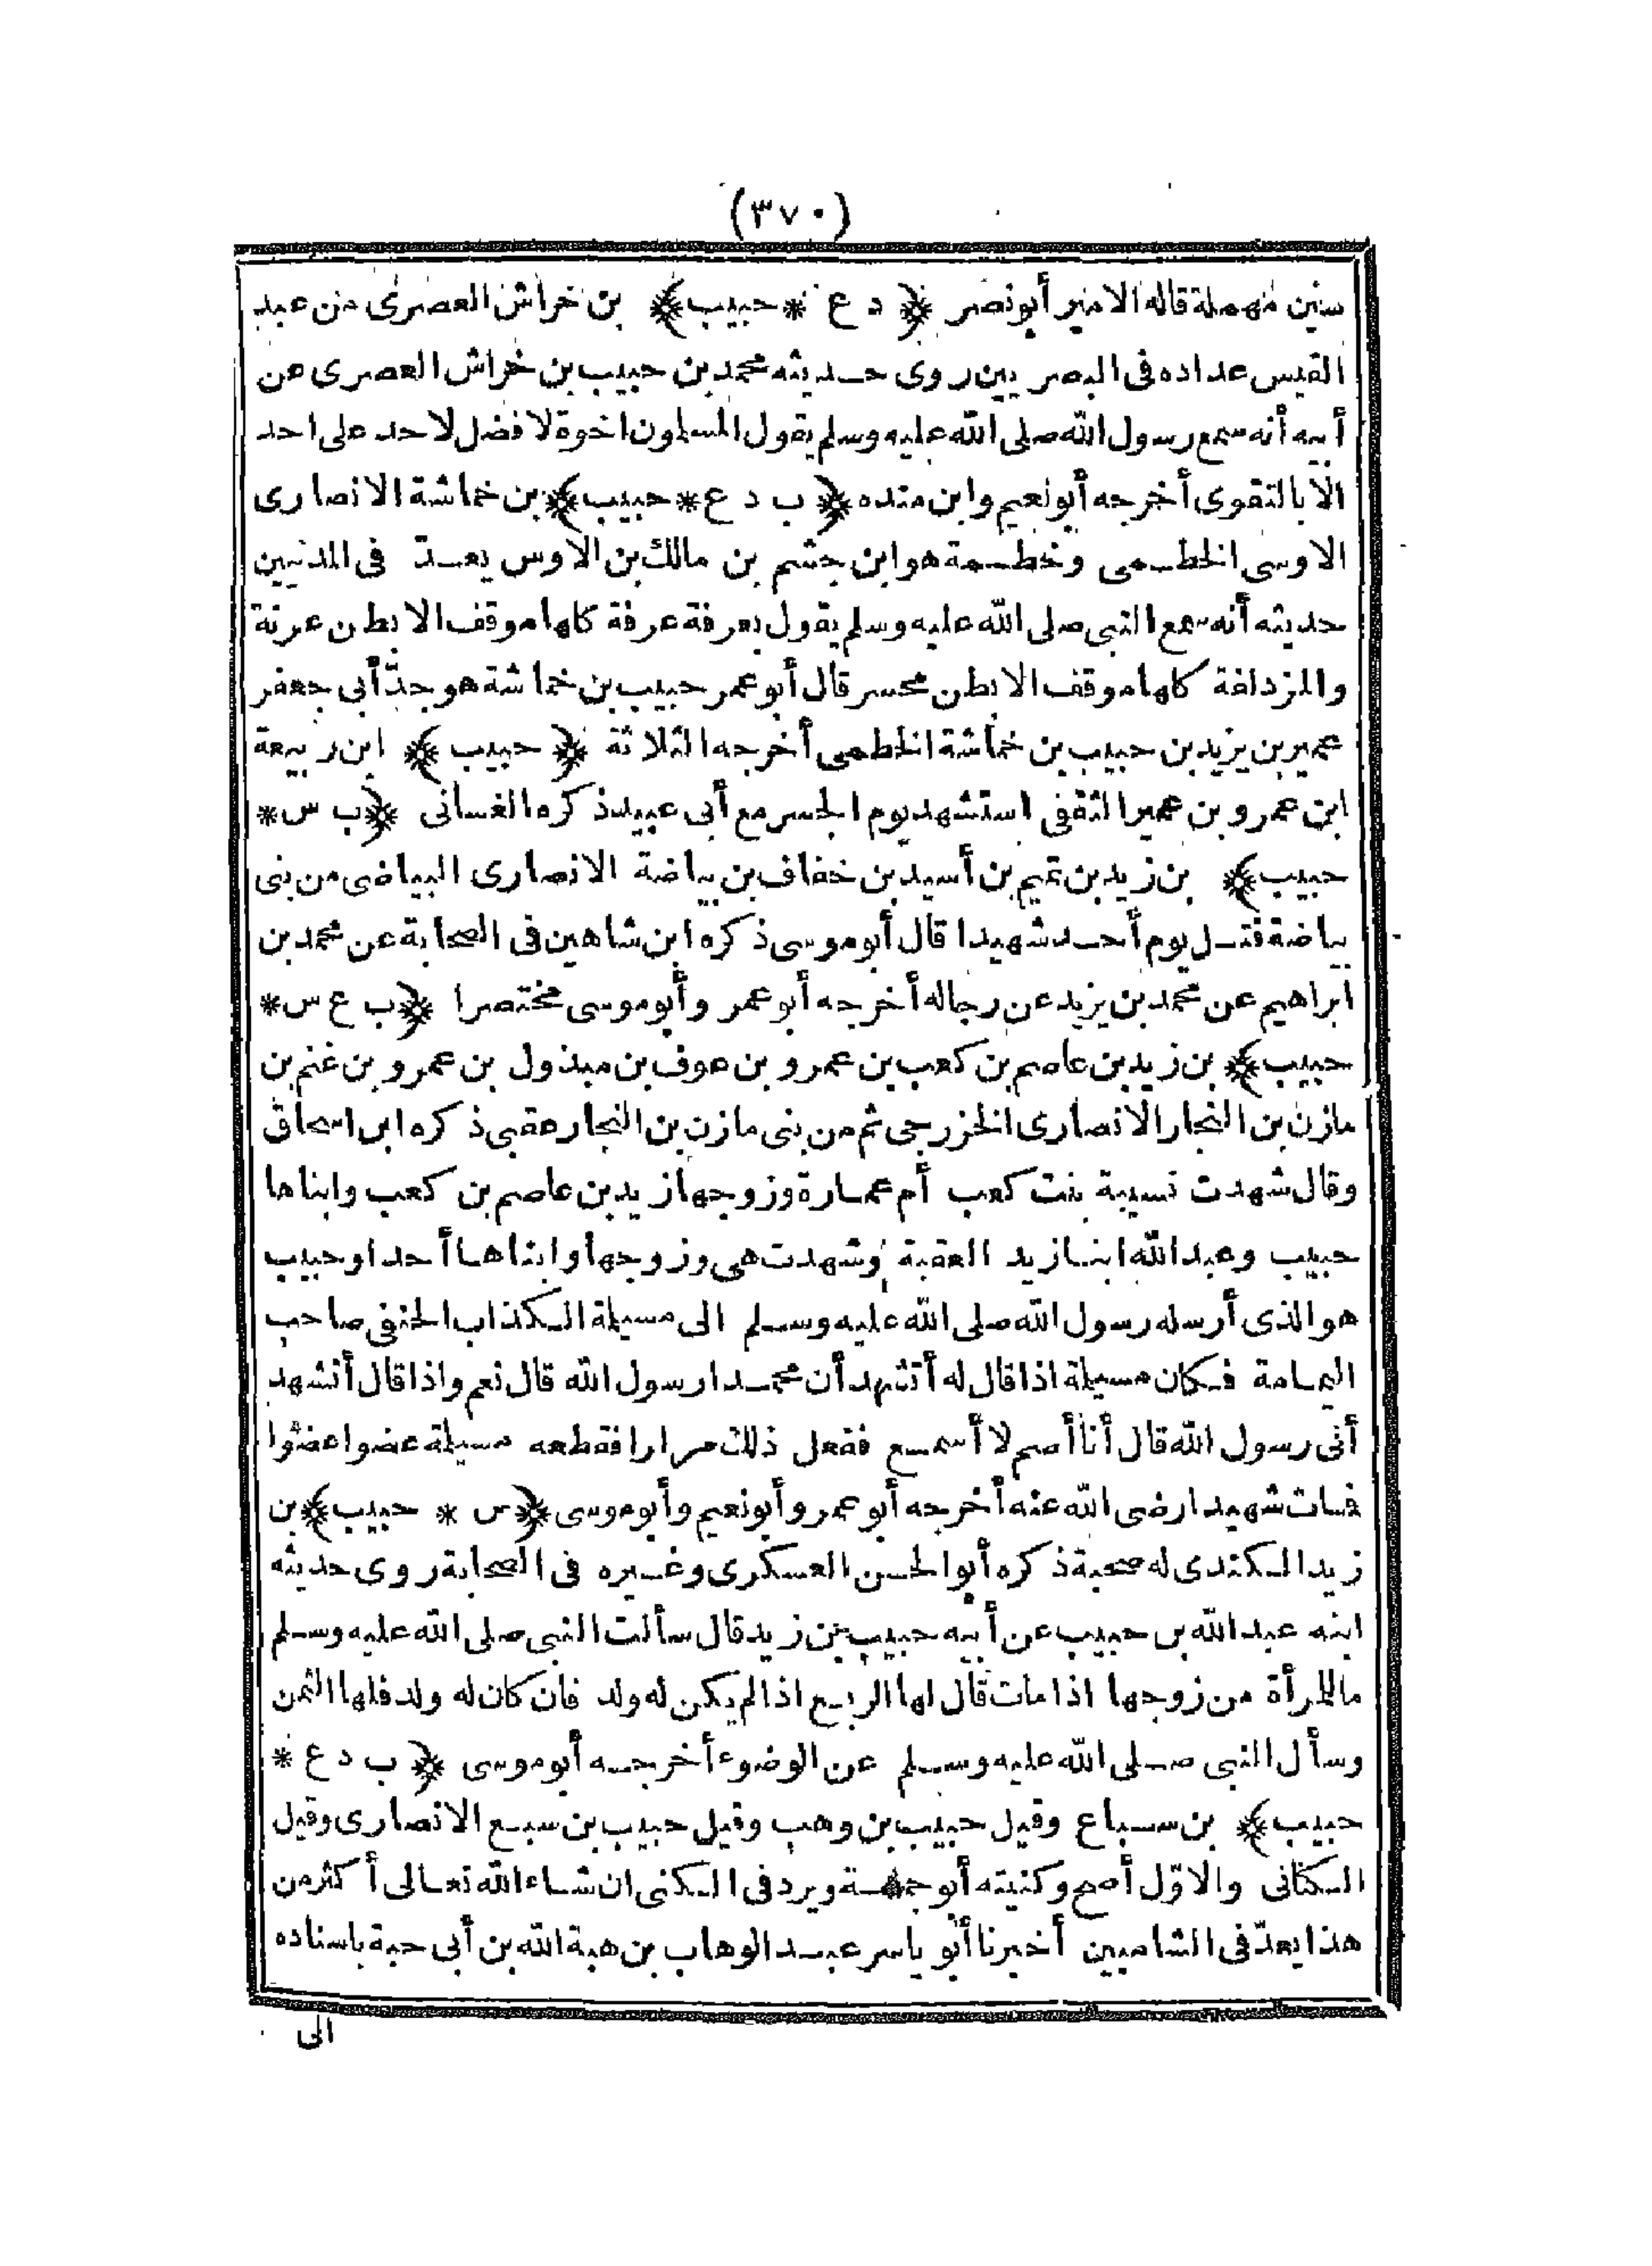 (٣٧٠)
سين مهملة قاله الامير أبو نصر ﴿ د ع * حبيب﴾ بن خراش العصرى من عبد
القيس عداده فى البصريين روى حديثه محمد بن حبيب بن خراش العصرى عن
أبيه أنه سمع رسول الله صلى الله عليه وسلم يقول المسلمون اخوة لا فضل لاحد على احد
الا بالتقوى أخرجه أبو نعيم وابن منده ﴿ ب د ع * حبيب﴾ بن خماشة الانصارى
الاوسى الخطمى وخطمة هو ابن جشم بن مالك بن الاوس يعدّ فى المدنيين
حديثه أنه سمع النبى صلى الله عليه وسلم يقول بعرفة عرفة كلها موقف الا بطن عرنة
والمزدلفة كلها موقف الا بطن محسر قال أبو عمر حبيب بن خماشة هو جدّ أبى جعفر
عمير بن يزيد بن حبيب بن خماشة الخطمى أخرجه الثلاثة ﴿ حبيب ﴾ ابن ربيعة
ابن عمرو بن عمير الثقفى استشهد يوم الجسر مع أبى عبيد ذكره الغسانى ﴿ب س *
حبيب﴾ بن زيد بن تميم بن أسيد بن خفاف بن بياضة الانصارى البياضى من بنى
بياضة قتل يوم أحد شهيدا قال أبو موسى ذكره ابن شاهين فى الصحابة عن محمد بن
ابراهيم عن محمد بن يزيد عن رجاله أخرجه أبو عمر وأبو موسى مختصرا ﴿ب ع س *
حبيب﴾ بن زيد بن عاصم بن كعب بن عمرو بن عوف بن مبذول بن عمرو بن غنم بن
مازن بن النجار الانصارى الخزرجى ثم من بنى مازن بن النجار عقبى ذكره ابن اسحاق
وقال شهدت نسيبة بنت كعب أم عمارة وزوجها زيد بن عاصم بن كعب وابناها
حبيب وعبد الله ابنا زيد العقبة وشهدت هى وزوجها وابناها أحدا وحبيب
هو الذى أرسله رسول الله صلى الله عليه وسلم الى مسيلة الكذاب الحنفى صاحب
اليمامة فكان مسيلة اذا قال له أتشهد أن محمدا رسول الله قال نعم واذا قال أتشهد
أنى رسول الله قال أنا أصم لا أسمع ففعل ذلك مرارا فقطعه مسيلة عضوا عضوا
فمات شهيدا رضى الله عنه أخرجه أبو عمر وأبو نعيم وأبو موسى ﴿س * حبيب﴾ بن
زيد الكندى له صحبة ذكره أبو الحسن العسكرى وغيره فى الصحابة روى حديثه
ابنه عبد الله بن حبيب عن أبيه حبيب بن زيد قال سألت النبى صلى الله عليه وسلم
ما للمرأة من زوجها اذا مات قال لها الربع اذا لم يكن له ولد فان كان له ولد فلها الثمن
وسأل النبى صلى الله عليه وسلم عن الوضوء أخرجه أبو موسى ﴿ ب د ع *
حبيب﴾ بن سباع وقيل حبيب بن وهب وقيل حبيب بن سبع الانصارى وقيل
الكنانى والاوّل أصح وكنيته أبو جمعة ويرد فى الكنى ان شاء الله تعالى أكثر من
هذا يعدّ فى الشاميين أخبرنا أبو ياسر عبد الوهاب بن هبة الله بن أبى حبة باسناده
الى